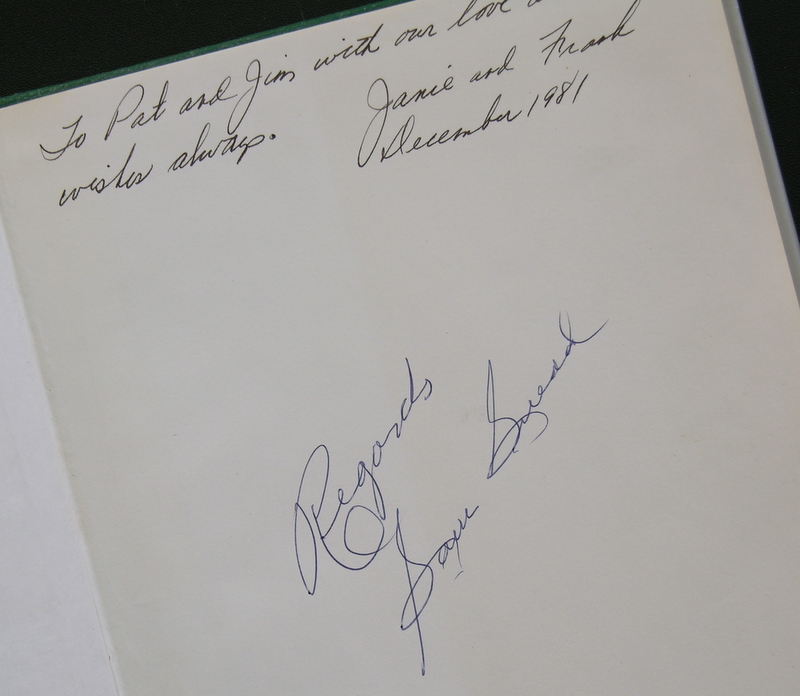 To Pat and Jim with our love
wishes always.
Janie and Frank
December 1981
Regards
Sam Snead